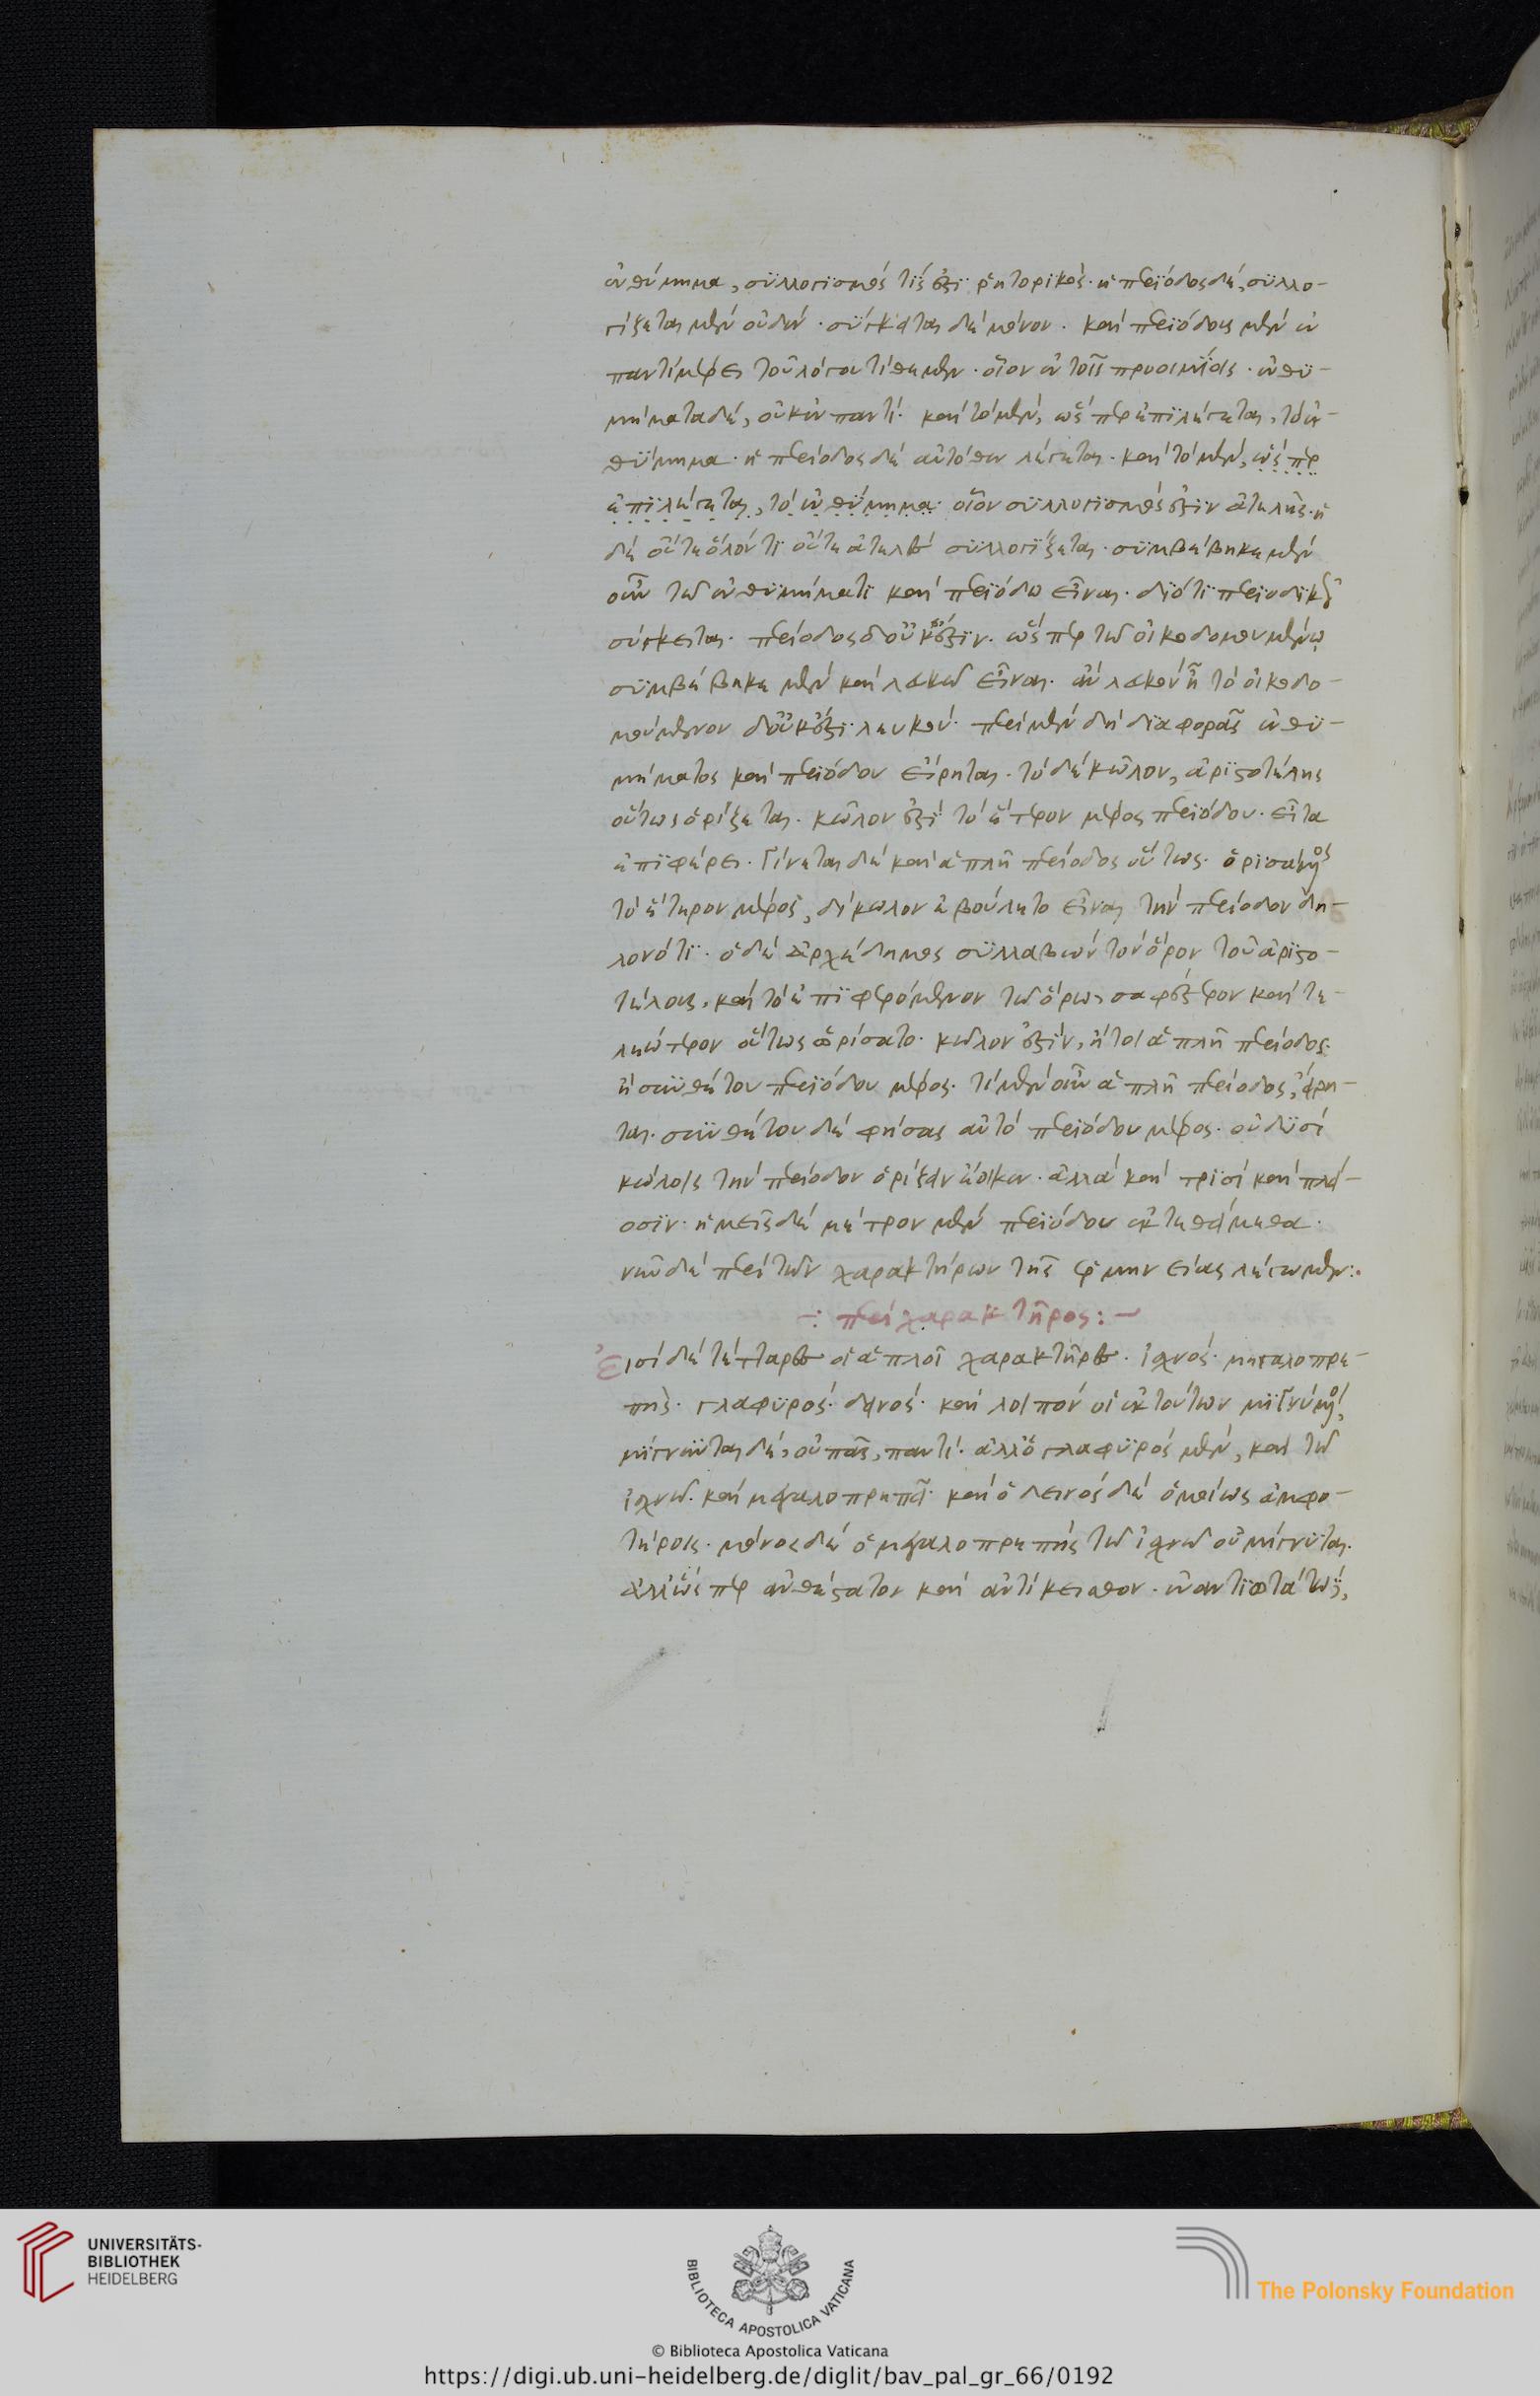 ἐνθύμημα, συλλογισμός τίς ἐστι ῥητορικός· ἡ περίοδος δέ, συλλο-
γίζεται μὲν οὐδέν· σύγκειται δὲ μόνον· καὶ περιόδους μὲν ἐν
παντὶ μέρει τοῦ λόγου τίθεμεν· οἷον ἐν τοῖς προοιμίοις· ἐνθυ-
μήματα δέ, οὐκ ἐν παντί· καὶ τὸ μέν, ὥσπερ ἐπιλέγεται, τὸ ἐν-
θύμημα· ἡ περίοδος δὲ αὐτόθεν λέγεται· καὶ τὸ μέν, ὥσπερ
ἐπιλέγεται, τὸ ἐνθύμημα· οἷον συλλογισμός ἐστιν ἀτελής· ἡ
δὲ οὔτε ὅλόν τι οὔτε ἀτελὲς συλλογίζεται· συμβέβηκε μὲν
οὖν τῷ ἐνθυμήματι καὶ περιόδω εἶναι· διότι περιοδικῶς
σύγκειται· περίοδος δ' οὔκ ἐστιν· ὥσπερ τῷ οἰκοδομουμένῳ
συμβέβηκε μὲν καὶ λευκῷ εἶναι· ἂν λευκὸν ἦ τὸ οἰκοδο-
μούμενον δ' οὔκ ἐστι λευκόν· περὶ μὲν δὴ διαφορᾶς ἐνθυ-
μήματος καὶ περιόδου εἴρηται· τὸ δὲ κῶλον, ἀριστοτέλης
οὕτως ὁρίζεται· κῶλον ἐστὶ τὸ ἕτερον μέρος περιόδου· εἶτα
ἐπιφέρει· Γίνεται δὲ καὶ ἁπλῆ περίοδος οὕτως· ὁρισάμενος
τὸ ἕτερον μέρος, δίκωλον ἐβούλετο εἶναι τὴν περίοδον δη-
λονότι· ὁ δὲ ἀρχέδημος συλλαβὼν τὸν ὅρον τοῦ ἀριστο-
τέλους, καὶ τὸ ἐπιφερόμενον τῷ ὅρω, σαφέστερον καὶ τε-
λεώτερον οὕτως ὡρίσατο· κῶλον ἐστίν, ἤτοι ἁπλῆ περίοδος·
ἢ συνθέτου περιόδου μέρος· τί μὲν οὖν ἁπλῆ περίοδος, εἴρη-
ται· συνθέτου δὲ φήσας αὐτὸ περιόδου μέρος· οὐ δυσὶ
κώλοις τὴν περίοδον ὁρίζειν ἔοικεν· ἀλλὰ καὶ τρισὶ καὶ πλεί-
οσιν· ἡμεῖς δὲ μέτρον μὲν περιόδου ἐκτεθείμεθα·
νῦν δὲ περὶ τῶν χαρακτήρων τῆς ἑρμηνείας λέγωμεν:·
÷ περὶ χαρακτῆρος:-
Εἰσὶ δὲ τέτταρες οἱ ἁπλοῖ χαρακτῆρες· ἰσχνός· μεγαλοπρε-
πής· γλαφυρός· δεινός· καὶ λοιπὸν οἱ ἐκ τούτων μιγνύμενοι,
μίγνυνται δέ, οὐ πᾶς, παντί· ἀλλ' ὁ γλαφυρὸς μέν, καὶ τῷ
ἰσχνῷ· καὶ μεγαλοπρεπεῖ· καὶ ὁ δεινὸς δὲ ὁμοίως ἀμφο-
τέροις· μόνος δὲ ὁ μεγαλοπρεπὴς τῷ ἰσχνῷ οὐ μίγνυται·
ἀλλ' ὥσπερ ἀνθέστατον καὶ ἀντίκεισθον· ἐναντιωτάτω,
UNIVERSITÄTS-
BIBLIOTHEK
HEIDELBERG
BIBLIOTECA APOSTOLICA VATICANA
The Polonsky Foundation
© Biblioteca Apostolica Vaticana
https://digi.ub.uni-heidelberg.de/diglit/bav_pal_gr_66/0192